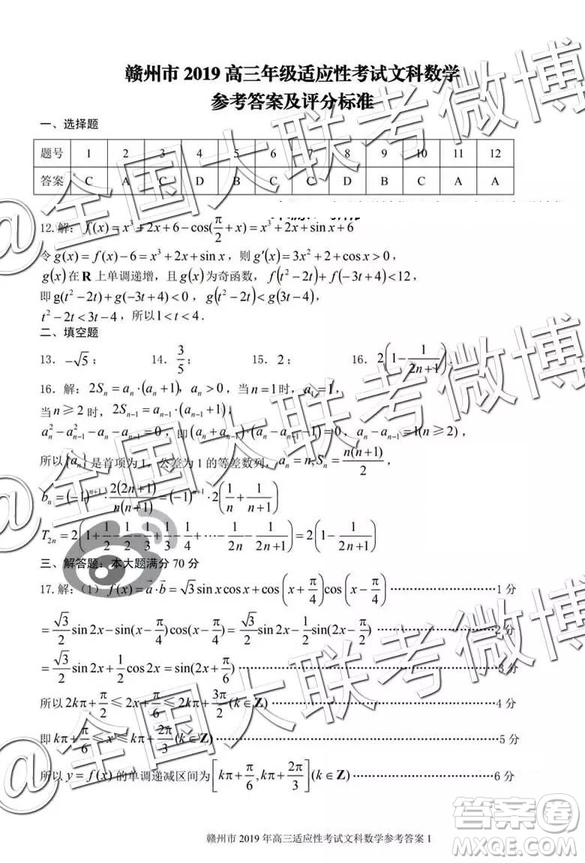 赣州市 2019 高三年级适应性考试文科数学
参考答案及评分标准
一、选择题
题号 1 2 3 4 5 6 7 8 9 10 11 12
答案 C A C D B C B D B C A A
12.解：f(x)=x³+2x+6-cos(π/2+x)=x³+2x+sin x+6
令g(x)=f(x)-6=x³+2x+sin x，则g′(x)=3x²+2+cos x>0，
g(x)在 R 上单调递增，且g(x)为奇函数，f(t²-2t)+f(-3t+4)<12，
即g(t²-2t)+g(-3t+4)<0，g(t²-2t)<g(3t-4)，
t²-2t<3t-4，所以1<t<4．
二、填空题
13．-√5； 14．3/5； 15．2； 16．2(1-1/(2n+1))．
16.解：2Sₙ=aₙ·(aₙ+1)，aₙ>0，当n=1时，a₁=1，
当n≥2时，2Sₙ₋₁=aₙ₋₁·(aₙ₋₁+1)，
aₙ²-aₙ₋₁²-aₙ-aₙ₋₁=0，即(aₙ+aₙ₋₁)·(aₙ-aₙ₋₁-1)=0，aₙ-aₙ₋₁=1(n≥2)，
所以{aₙ}是首项为1，公差为1的等差数列，aₙ=n,Sₙ=n(n+1)/2，
bₙ=(-1)ⁿ⁺¹·2(2n+1)/n(n+1)=(-1)ⁿ⁺¹·2(1/n+1/(n+1))
三、解答题：本大题满分 70 分
17.解：(1) f(x)=a·b=√3sin x cos x+cos(x+π/4)cos(x-π/4) 1 分
=√3/2 sin2x-sin(x-π/4)cos(x-π/4) 2 分
=√3/2 sin2x+1/2 cos2x=sin(2x+π/6) 3 分
所以2kπ+π/2≤2x+π/6≤2kπ+3π/2(k∈Z) 4 分
即kπ+π/6≤x≤kπ+2π/3(k∈Z) 5 分
所以y=f(x)的单调递减区间为[kπ+π/6,kπ+2π/3](k∈Z) 6 分
赣州市 2019 年高三适应性考试文科数学参考答案 1
@全国大联考微博
@全国大联考微博
@全国大联考微博
作业帮